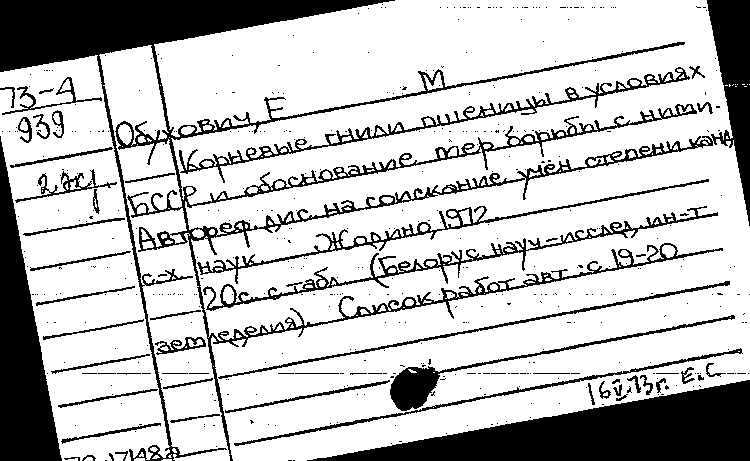 73-4
939
2 экз
Обухович, Е М
Корневые гнили пшеницы в условиях
БССР и обоснование мер борьбы с ними.
Автореф. дис. на соискание учён степени канд
с-х наук. Жодино, 1972.
20с. с табл (Белорус. науч-исслед. ин-т
земледелия). Список работ авт: с 19-20
16 V.73г. Е.С.